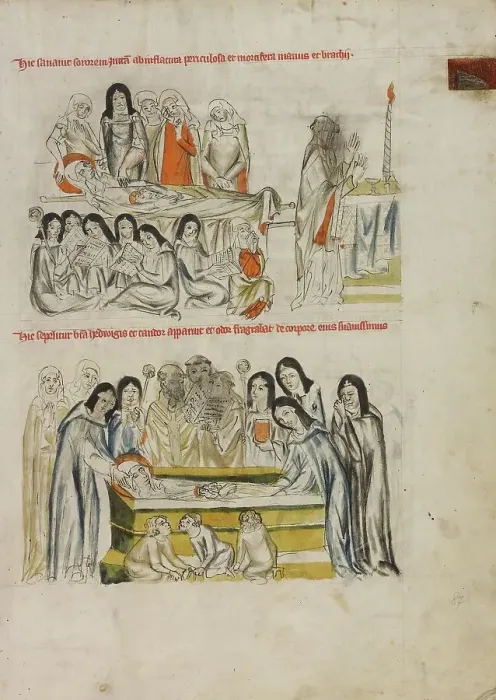 Hic sanauit sororem Juttā ab inflatura periculosa et mortifera manus et brachij.
Hic sepelitur bt̄a hedwigis et candor apparuit et odor fragrabat de corpore eius suauissimus